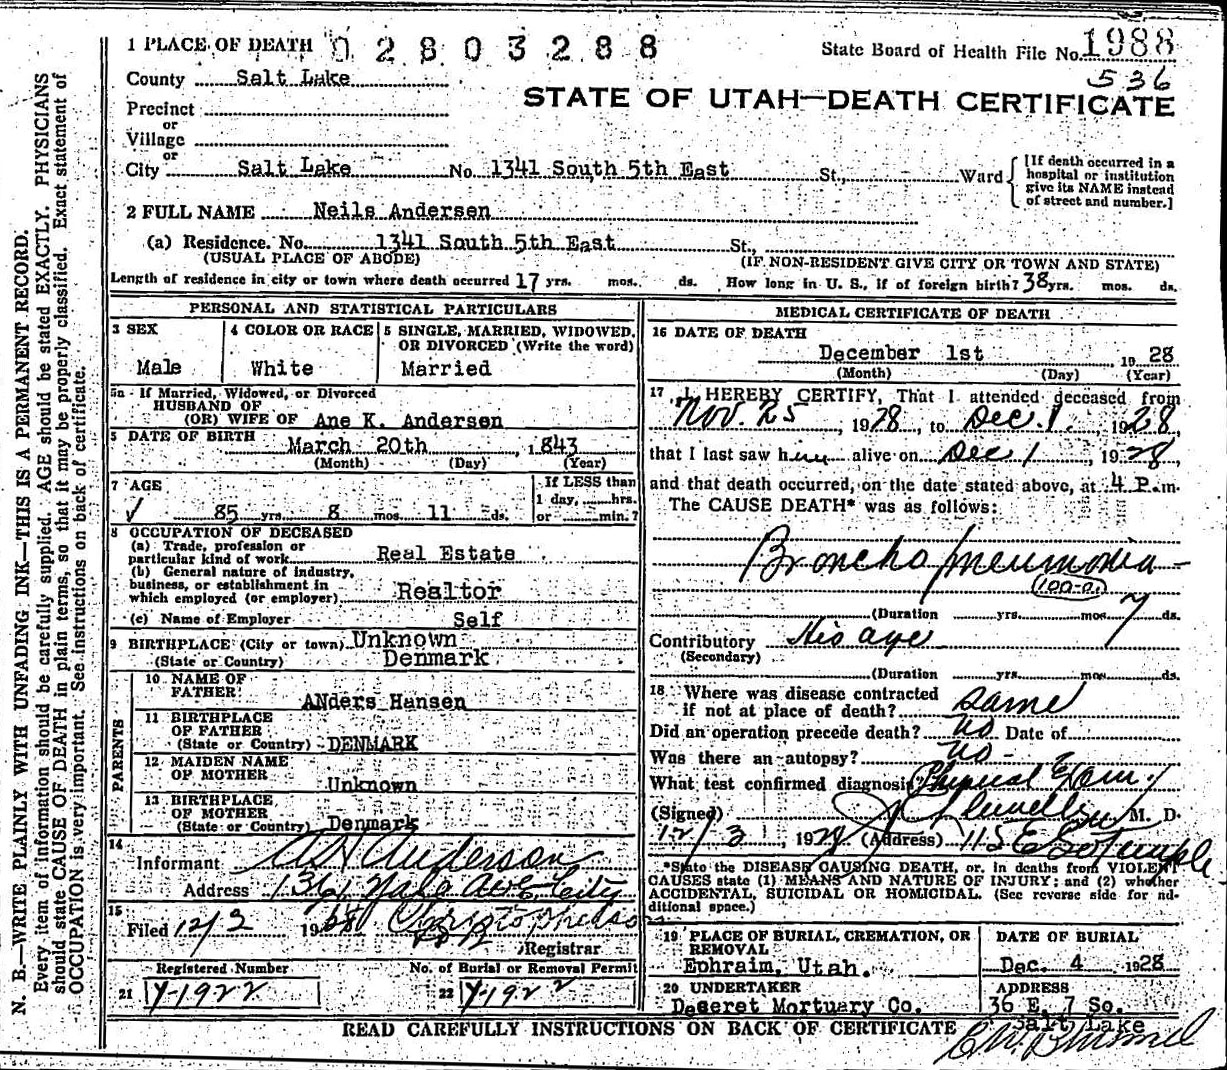 1 PLACE OF DEATH 02803288 State Board of Health File No. 1988
County Salt Lake 536
STATE OF UTAH—DEATH CERTIFICATE
Precinct
or
Village
or
City Salt Lake No. 1341 South 5th East St., Ward [If death occurred in a hospital or institution give its NAME instead of street and number.]
2 FULL NAME Neils Andersen
(a) Residence. No. 1341 South 5th East St.,
(USUAL PLACE OF ABODE) (IF NON-RESIDENT GIVE CITY OR TOWN AND STATE)
Length of residence in city or town where death occurred 17 yrs. mos. ds. How long in U. S., if of foreign birth? 38 yrs. mos. ds.
PERSONAL AND STATISTICAL PARTICULARS
3 SEX
Male
4 COLOR OR RACE
White
5 SINGLE, MARRIED, WIDOWED,
OR DIVORCED (Write the word)
Married
5a If Married, Widowed, or Divorced
HUSBAND OF
(OR) WIFE OF Ane K. Andersen
6 DATE OF BIRTH March 20th, 1843
(Month) (Day) (Year)
7 AGE
85 yrs. 8 mos. 11 ds.
If LESS than
1 day, hrs.
or min.?
8 OCCUPATION OF DECEASED
(a) Trade, profession or
particular kind of work Real Estate
(b) General nature of industry,
business, or establishment in
which employed (or employer) Realtor
(c) Name of Employer Self
9 BIRTHPLACE (City or town) Unknown
(State or Country) Denmark
PARENTS
10 NAME OF
FATHER ANders Hansen
11 BIRTHPLACE
OF FATHER
(State or Country) DENMARK
12 MAIDEN NAME
OF MOTHER
Unknown
13 BIRTHPLACE
OF MOTHER
(State or Country) Denmark
14
Informant A H Anderson
Address 1361 Yale Ave City
15
Filed 12/3 19
Registrar
Registered Number
21 Y-1922
No. of Burial or Removal Permit
22 Y-1922
MEDICAL CERTIFICATE OF DEATH
16 DATE OF DEATH
December 1st, 1928
(Month) (Day) (Year)
17 I HEREBY CERTIFY, That I attended deceased from
Nov. 25, 1928, to Dec. 1., 1928,
that I last saw him alive on Dec 1, 1928,
and that death occurred, on the date stated above, at 4 P.m.
The CAUSE DEATH* was as follows:
Broncho pneumonia
100-a
(Duration yrs. mos. 7 ds.
Contributory His age
(Secondary)
(Duration yrs. mos. ds.
18 Where was disease contracted
if not at place of death? same
Did an operation precede death? no Date of
Was there an autopsy? no
What test confirmed diagnosis? Physical Exam.
(Signed) M. D.
12/3, 1928 (Address) 115 E So Temple
*State the DISEASE CAUSING DEATH, or, in deaths from VIOLENT
CAUSES state (1) MEANS AND NATURE OF INJURY; and (2) whether
ACCIDENTAL, SUICIDAL OR HOMICIDAL. (See reverse side for additional space.)
19 PLACE OF BURIAL, CREMATION, OR
REMOVAL
Ephraim, Utah.
DATE OF BURIAL
Dec. 4 1928
20 UNDERTAKER
Deseret Mortuary Co.
ADDRESS
36 E. 7 So.
Salt Lake
READ CAREFULLY INSTRUCTIONS ON BACK OF CERTIFICATE
N. B.—WRITE PLAINLY WITH UNFADING INK—THIS IS A PERMANENT RECORD.
Every item of information should be carefully supplied. AGE should be stated EXACTLY. PHYSICIANS
should state CAUSE OF DEATH in plain terms, so that it may be properly classified. Exact statement of
OCCUPATION is very important. See instructions on back of certificate.